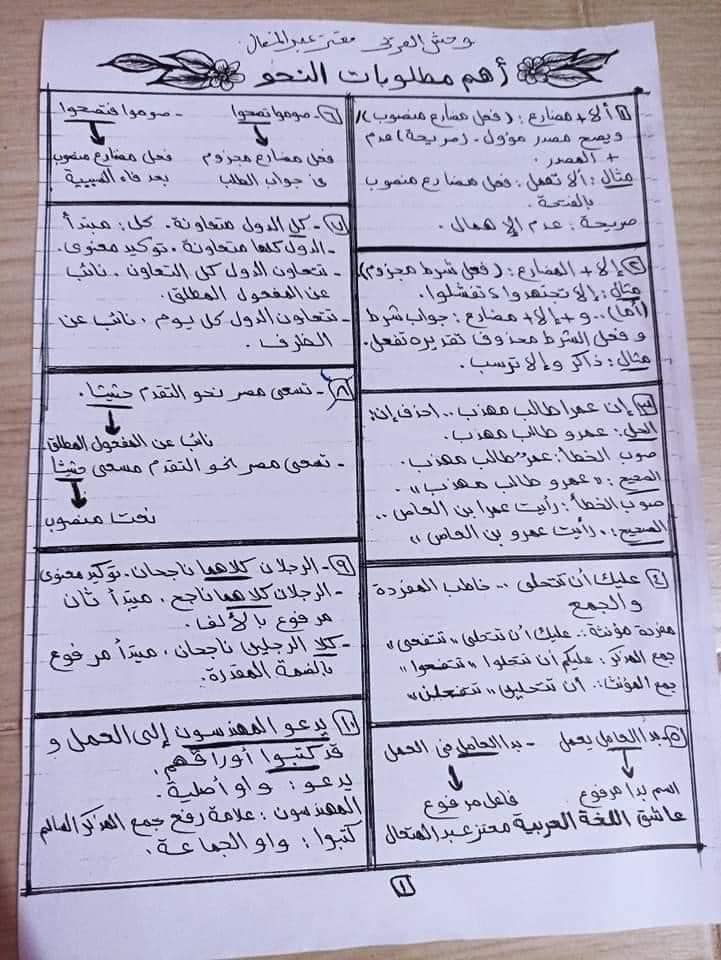 وحش العربي معتز عبد المتعال
أهم مطلوبات النحو
١ ألا + مضارع : (فعل مضارع منصوب)
ويصح مصدر مؤول. (صريحة) عدم
+ المصدر.
مثال : ألا تهمل : فعل مضارع منصوب
بالفتحة.
صريحة : عدم الإهمال.
٢ إلا + المضارع : (فعل شرط مجزوم)
مثال : إلا تجتهدوا تفشلوا.
(أما) .. و + إلا + مضارع : جواب شرط
و فعل الشرط محذوف تقديره تفعل.
مثال : ذاكر وإلا ترسب.
٣ إن عمرا طالب مهذب .. احذف إن :
الحل : عمرو طالب مهذب.
صوب الخطأ : عمر طالب مهذب.
الصحيح : " عمرو طالب مهذب ".
صوب الخطأ : رأيت عمرا ابن العاص ..
الصحيح : " رأيت عمرو بن العاص "
٤ عليك أن تتحلى ... خاطب المفردة
والجمع
مفردة مؤنثة : عليك أن تتحلي " تتفعي "
جمع المذكر : عليكم أن تتحلوا " تتفعوا "
جمع المؤنث : أن تتحلين " تتفعلن "
٥ بدأ العامل يعمل - بدأ العامل في العمل
اسم بدأ مرفوع فاعل مرفوع
عاشق اللغة العربية معتز عبد المتعال
٦ - صوموا تصحوا - صوموا فتصحوا
فعل مضارع مجزوم فعل مضارع منصوب
في جواب الطلب بعد فاء السببية
٧ - كل الدول متعاونة . كل : مبتدأ
- الدول كلها متعاونة . توكيد معنوي.
- تتعاون الدول كل التعاون . نائب
عن المفعول المطلق.
- تتعاون الدول كل يوم . نائب عن
الظرف.
٨ - تسعى مصر نحو التقدم حثيثا.
نائب عن المفعول المطلق.
- تسعى مصر نحو التقدم مسعى حثيثا
نعت منصوب
٩ - الرجلان كلاهما ناجحان . توكيد معنوي
- الرجلان كلاهما ناجح . مبتدأ ثان
مرفوع بالألف.
- كلا الرجلين ناجحان . مبتدأ مرفوع
بالضمة المقدرة.
١٠ يدعو المهندسون إلى العمل و
قد كتبوا أوراقهم.
يدعو : واو أصلية.
المهندسون : علامة رفع جمع المذكر السالم
كتبوا : واو الجماعة.
١